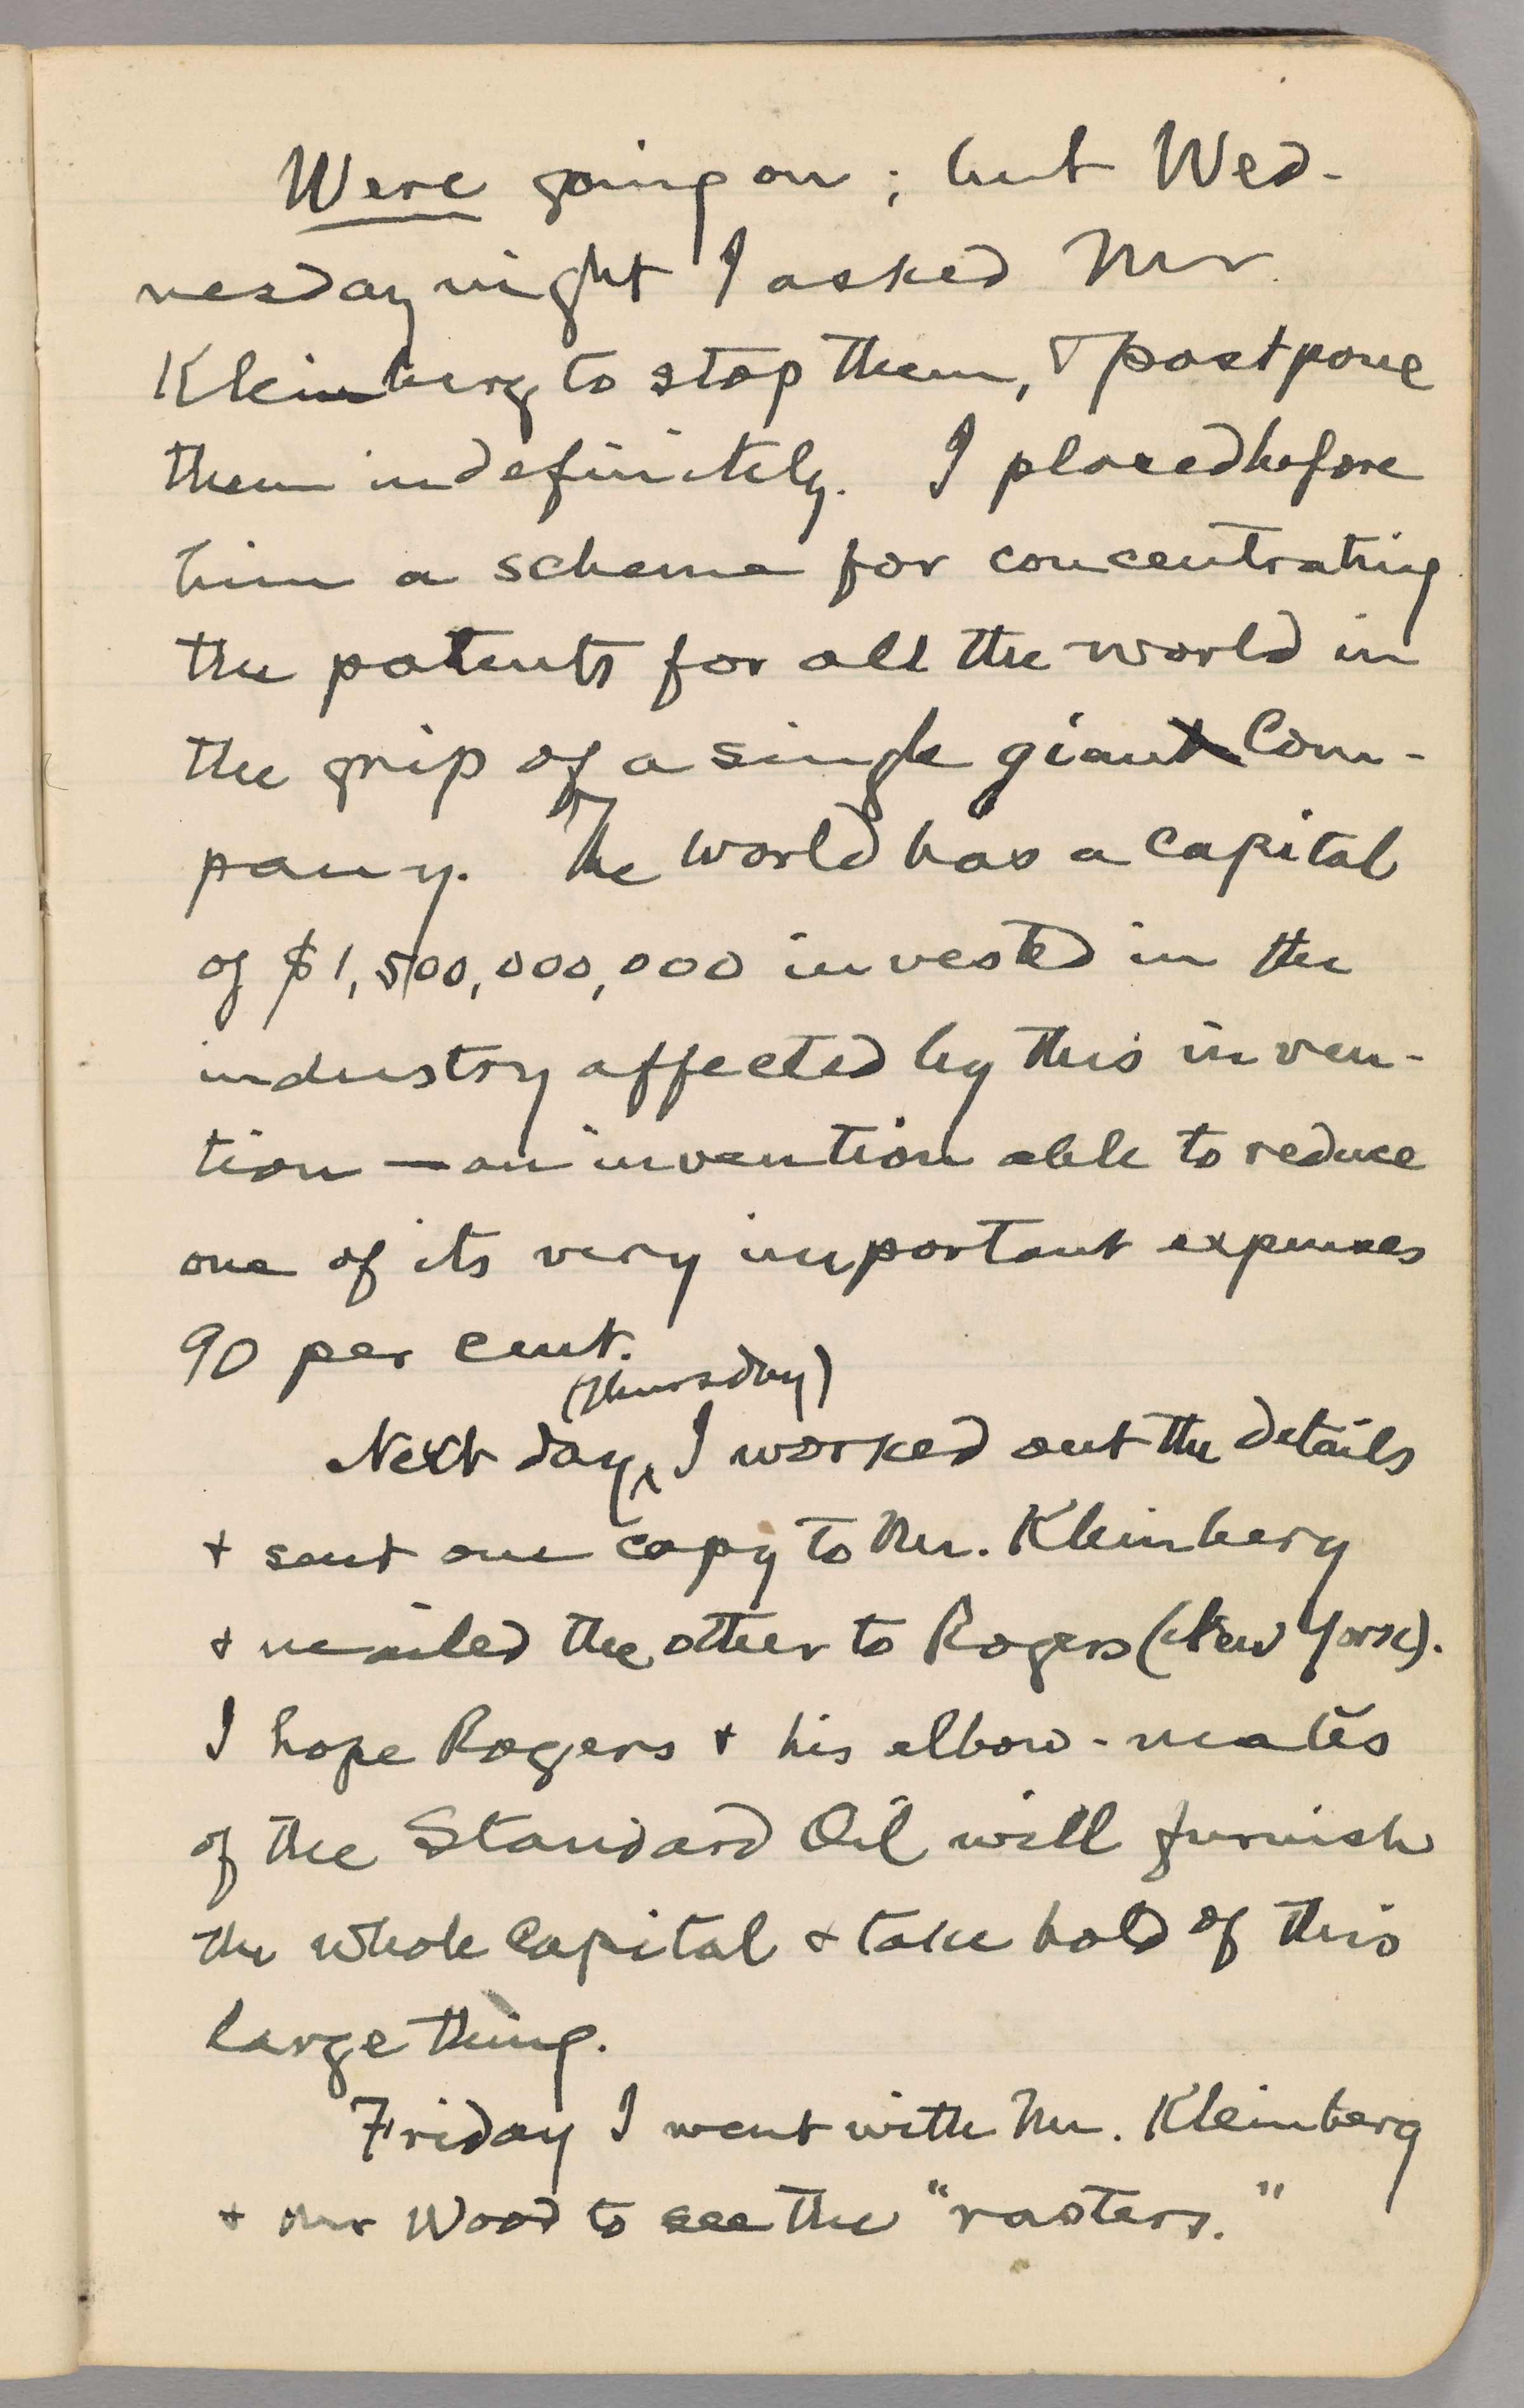 Were going on; but Wed-
nesday night I asked Mr.
Kleinberg to stop them, & postpone
them indefinitely. I placed before
him a scheme for concentrating
the patents for all the world in
the grip of a single giant Com-
pany. The world has a capital
of $1,500,000,000 invested in the
industry affected by this inven-
tion — an invention able to reduce
one of its very important expenses
90 per cent.
(Thursday)
Next day, ^ I worked out the details
& sent one copy to Mr. Kleinberg
& mailed the other to Rogers (New York).
I hope Rogers & his elbow-mates
of the Standard Oil will furnish
the whole capital & take hold of this
large thing.
Friday I went with Mr. Kleinberg
& Mr Wood to see the "rasters."